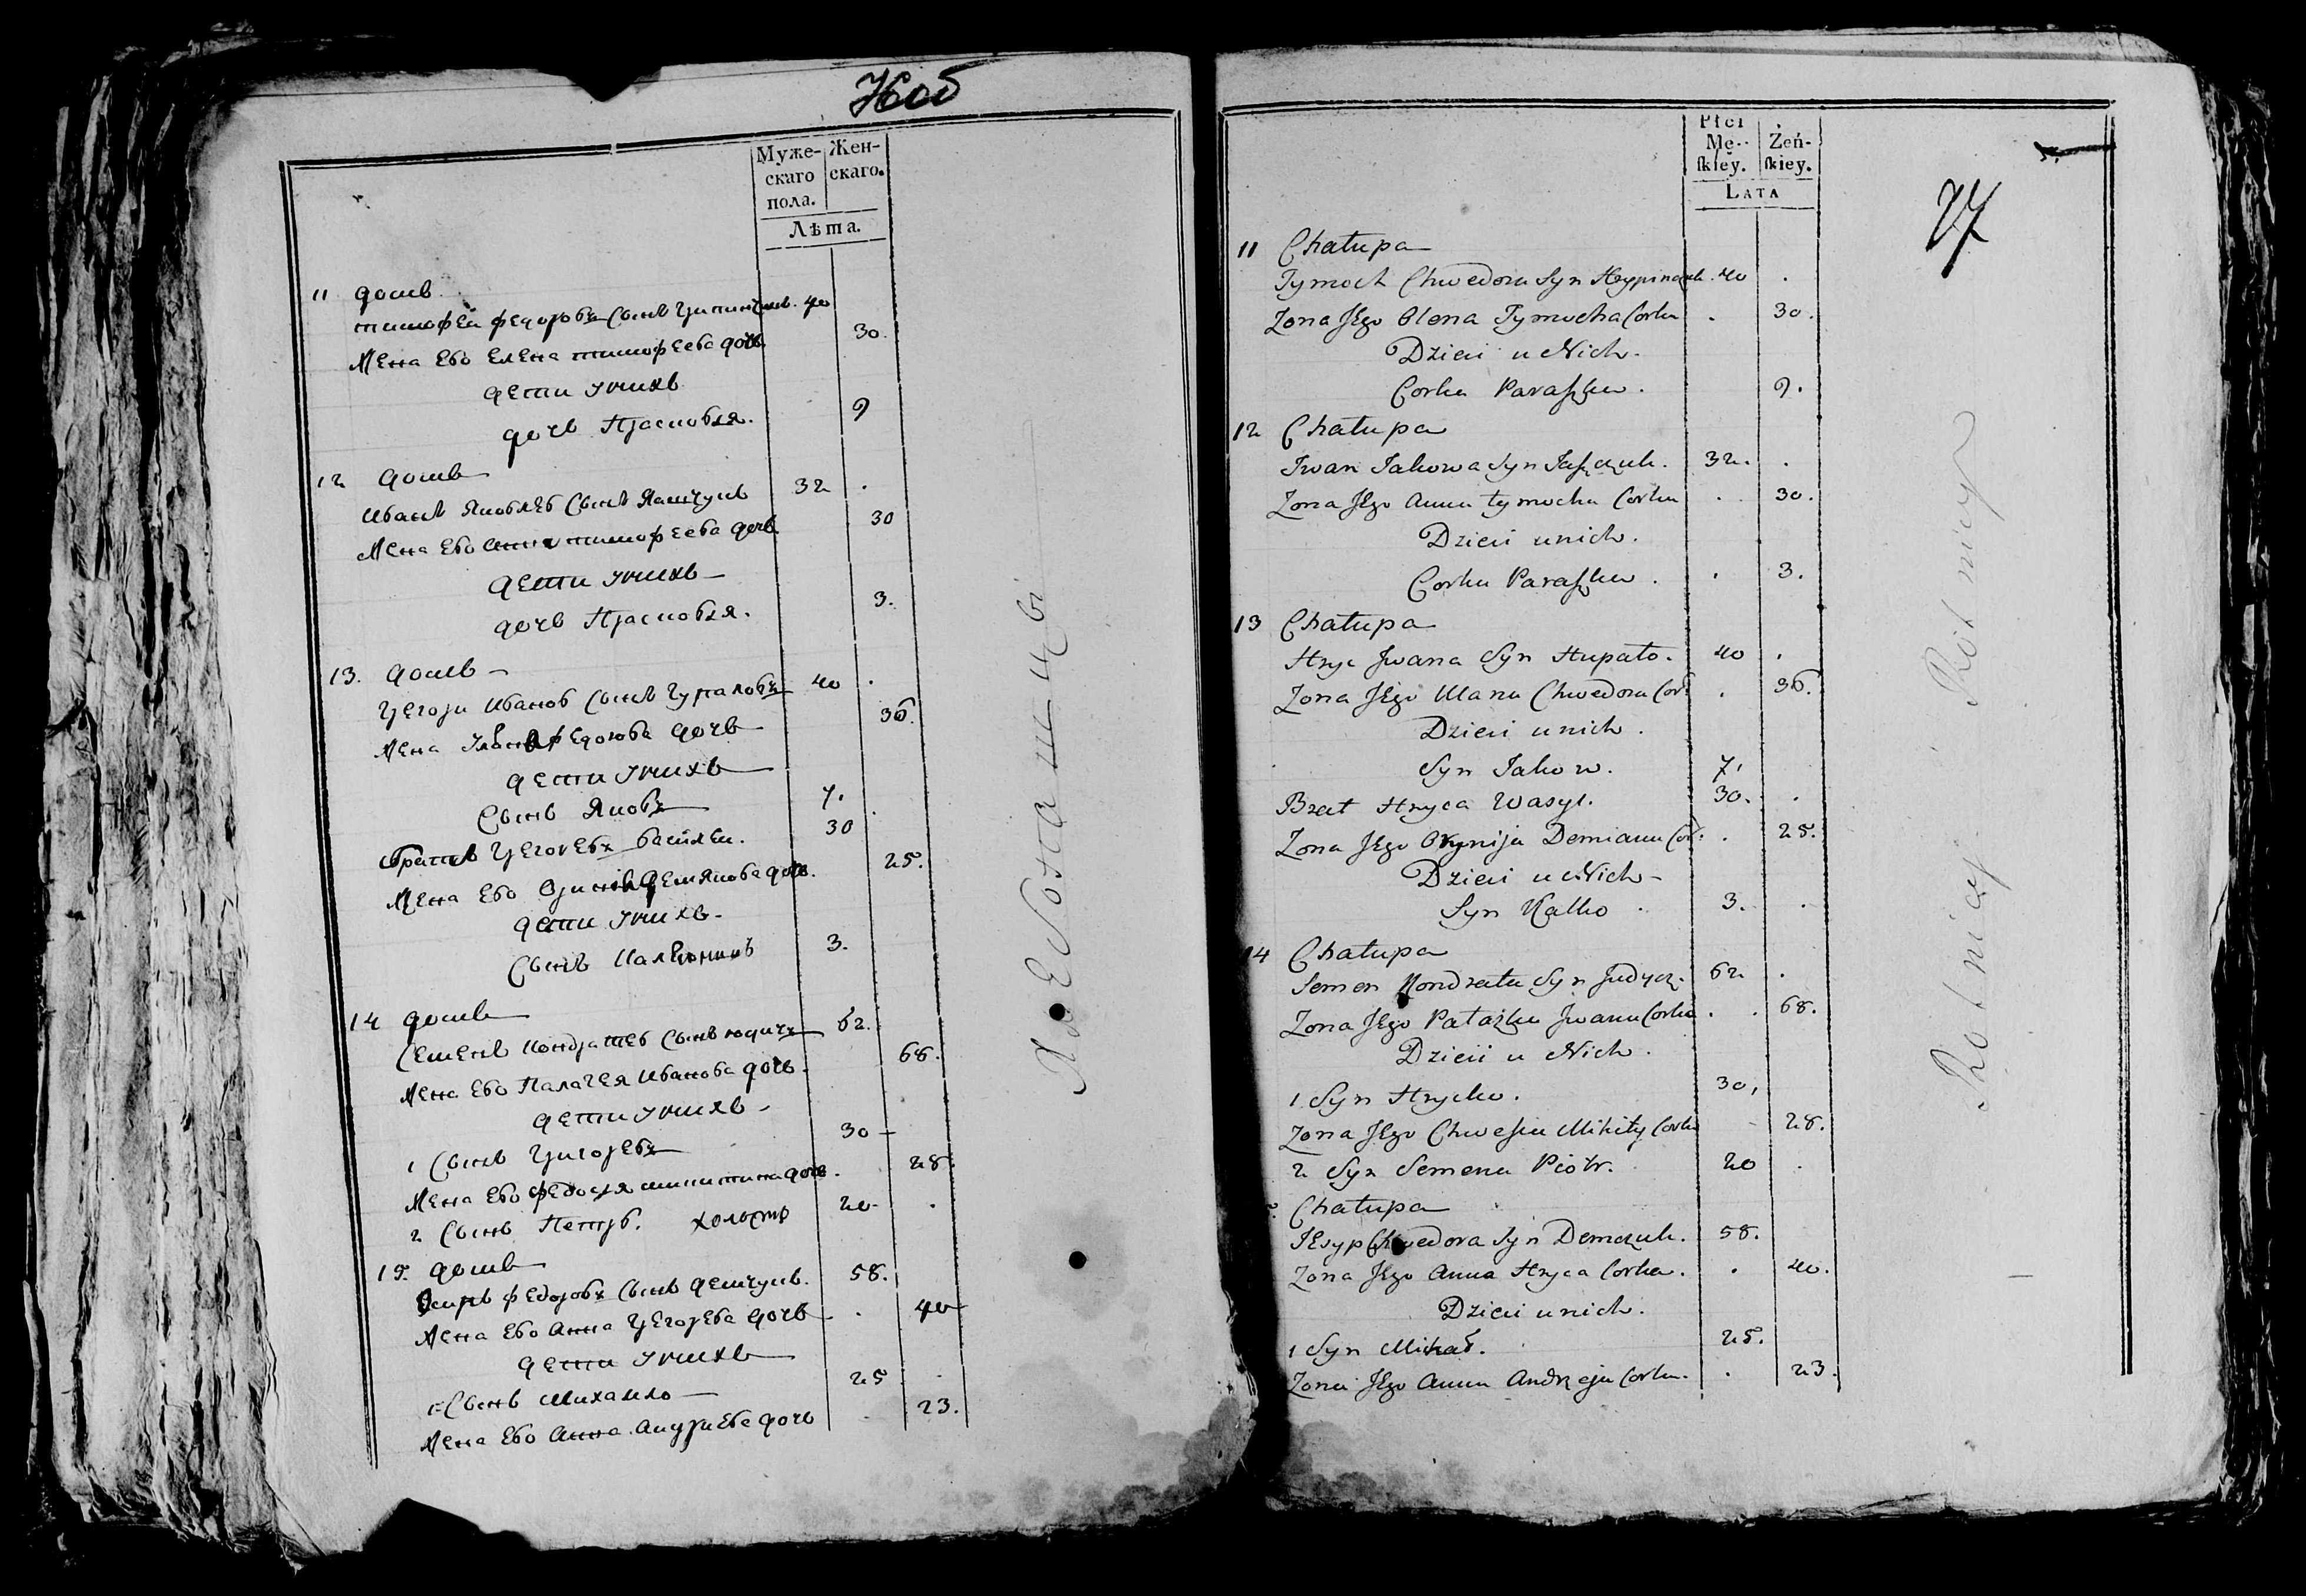 Муже-
скаго
пола.
Жен-
скаго.
Лѣта.
11 домъ
тимофей федоровъ Сынъ 40
Жена Ево Елена тимофеева дочь 30.
дети унихъ
дочь Прасковья. 9
12 домъ
Иванъ Яковлев Сынъ Яшчукъ 32 .
Жена Ево анна тимофеева дочь 30
дети унихъ
дочь Прасковья. 3.
13. домъ
Григори Иванов Сынъ 40 .
Жена федорова дочь 36.
дети унихъ
Сынъ Яковъ 7.
братъ Григоревъ василеи. 30
Жена Ево демянова дочь. 25.
дети унихъ
Сынъ 3.
14 домъ
Семенъ Кондратев Сынъ юдичъ 62.
Жена Ево Палагея Иванова дочь. 68.
дети унихъ
1 Сынъ Григореъ 30
Жена Ево федосья микитина дочь. 28.
2 Сынъ Петръ. холостъ 20 .
15. домъ
Осипъ федоровъ Сынъ демчукъ. 58.
Жена Ево Анна Григорева дочь . 40
дети унихъ
1 Сынъ Михаило 25 .
Жена Ево Анна Андриева дочь . 23.
Płci
Mę-
skiey.
Żeń-
skiey.
LATA
27
11 Chałupa
Tymoch Chwedora Syn 40 .
Zona Jego Olena Tymocha Corka . 30.
Dzieci u Nich.
Corka Paraszka. 9.
12 Chałupa
Iwan Jakowa Syn Jaszczuk. 32. .
Zona Jego Anna tymocha Corka . 30.
Dzieci u nich.
Corka Paraszka. . 3.
13 Chałupa
Hryc Jwana Syn Hupało. 40 .
Zona Jego Ulana Chwedora Cor: . 36.
Dzieci u nich.
Syn Jakow. 7.
Brat Hryca Wasyl. 30. .
Zona Jego Demiana Cor: . 25.
Dzieci u Nich
Syn Kalko . 3. .
14 Chałupa
Semen Kondrata Syn Judycz. 62 .
Zona Jego Patażka Jwana Corka . . 68.
Dzieci u Nich.
1 Syn Hryćko. 30,
Zona Jego Chweśka Mikity Corka 28.
2 Syn Semena Piotr. 20 .
Chałupa
Jesyp Chwedora Syn Demczuk. 58.
Zona Jego Anna Hryca Corka. . 40.
Dzieci u nich.
1 Syn Michał. 25.
Zona Jego Anna Andrzeja Corka. . 23.
Rotnicy Rotnicy